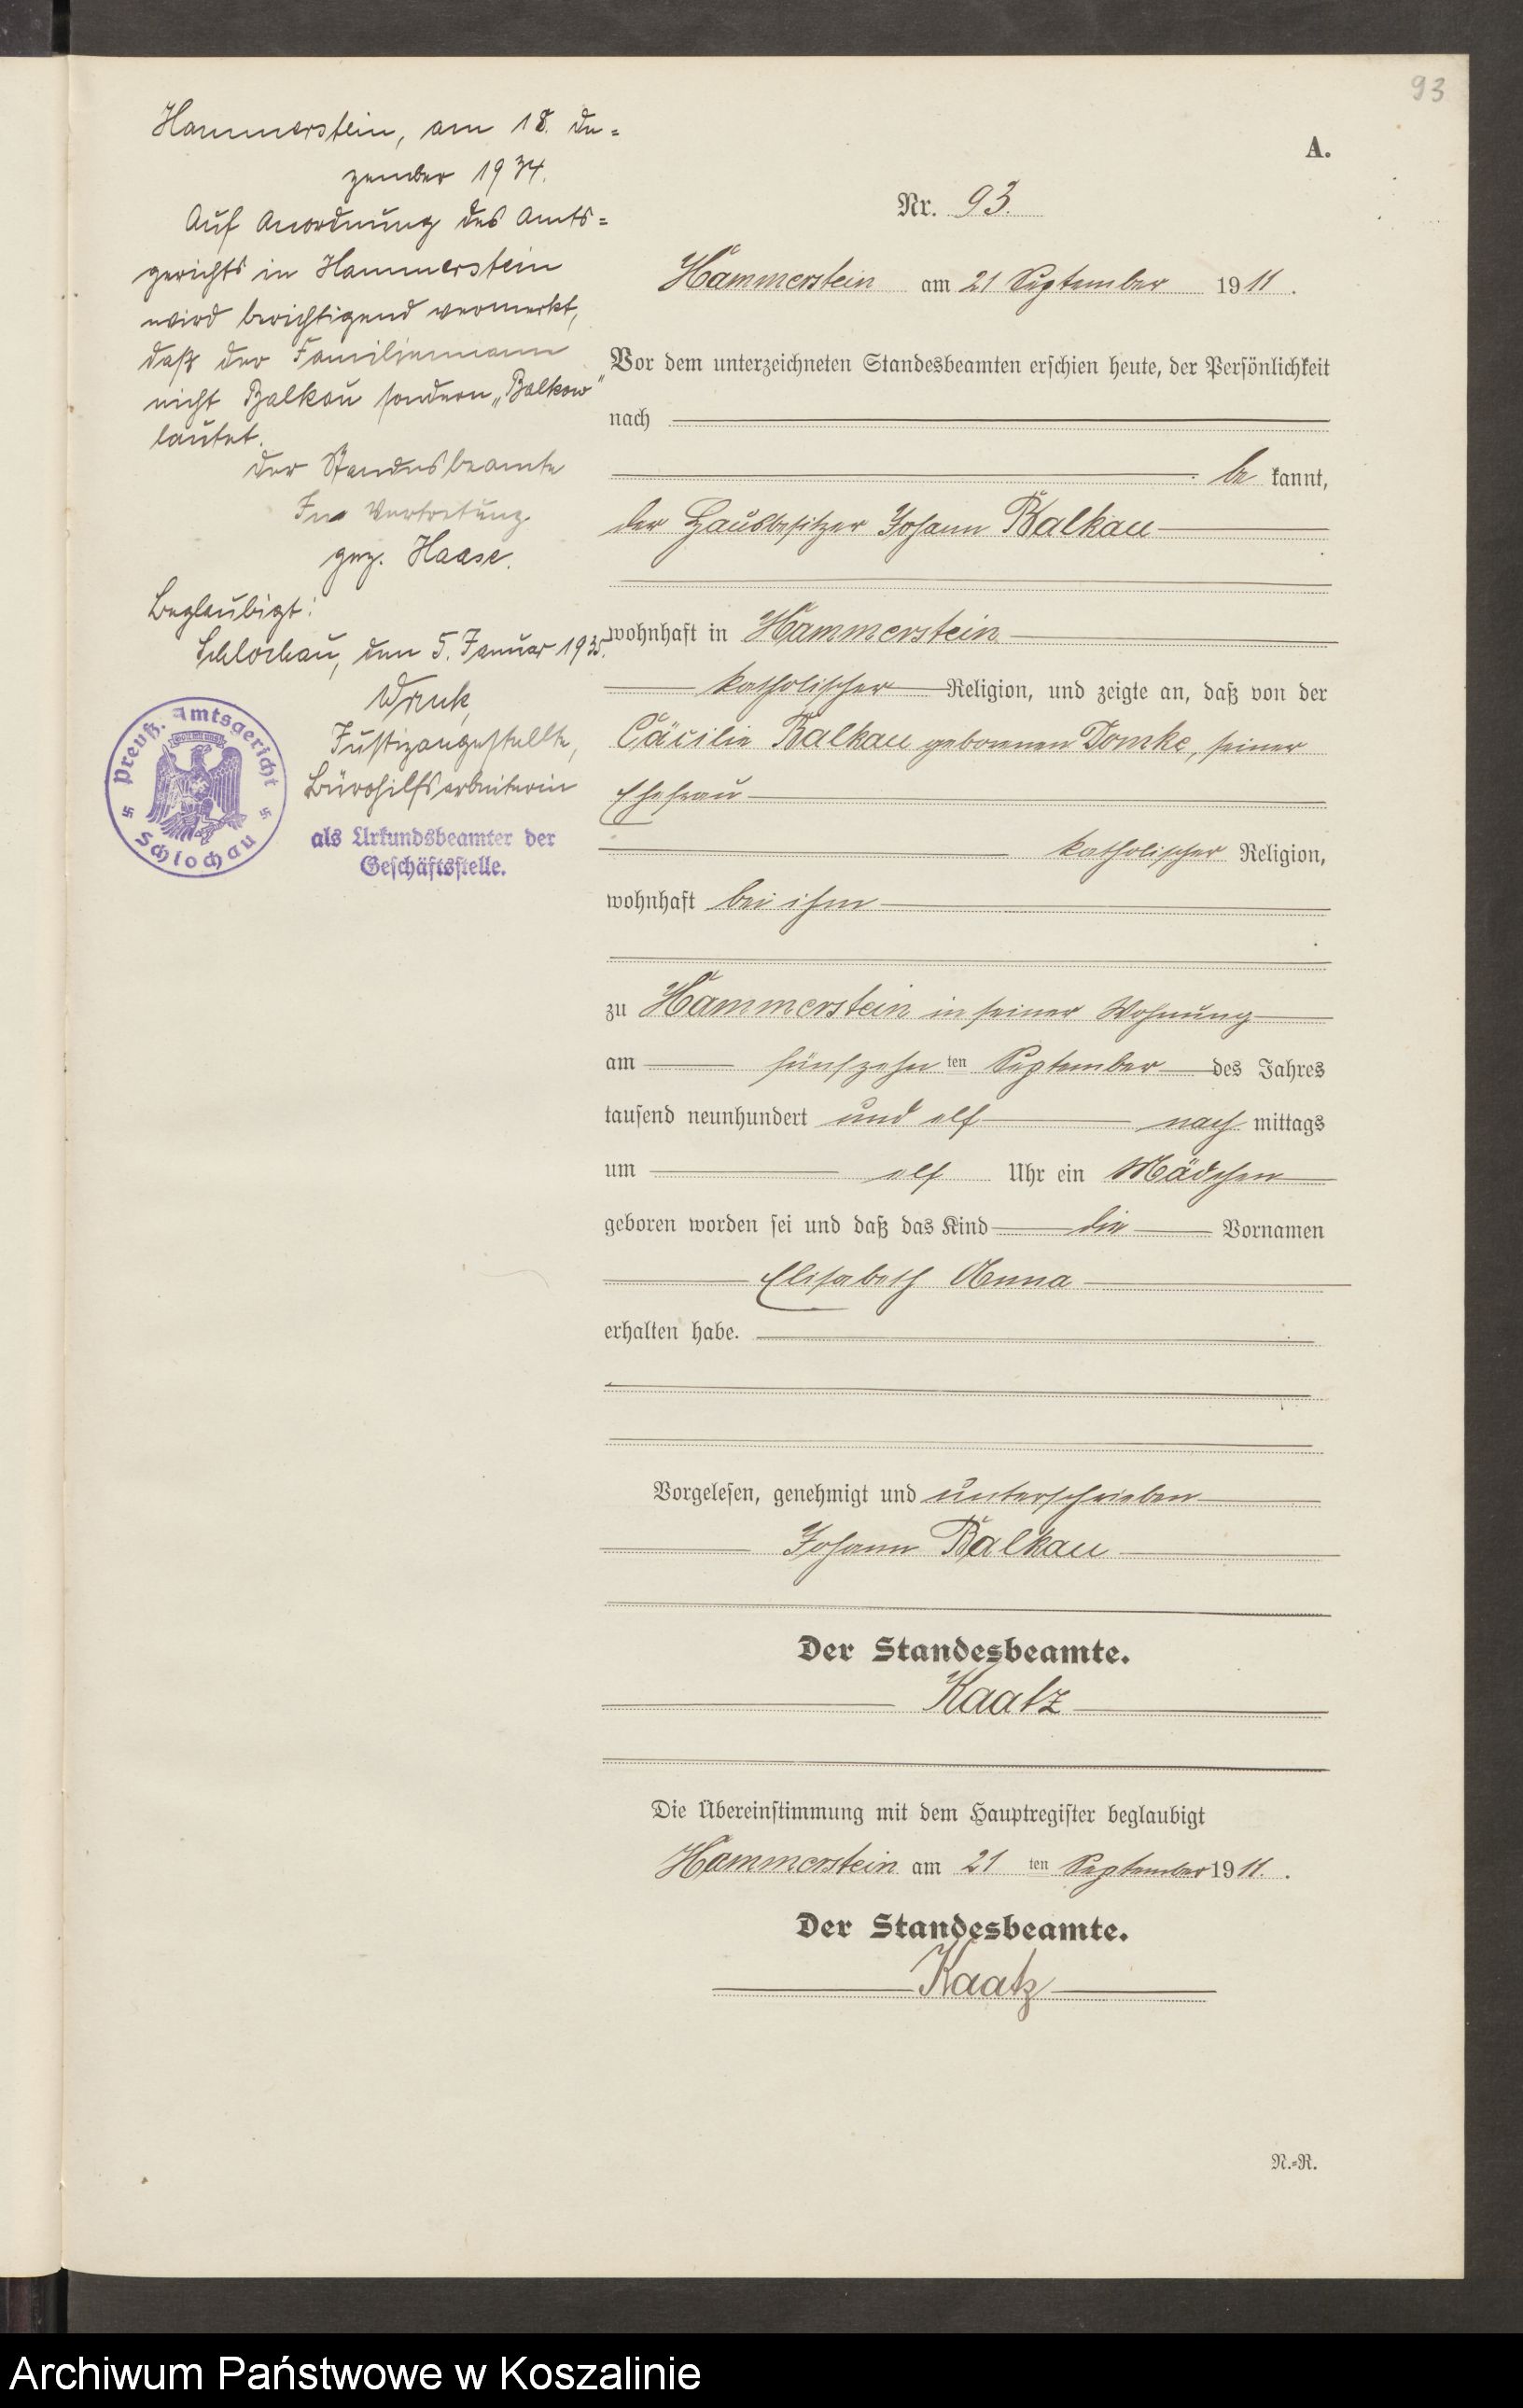 93
Hammerstein, am 18. De=
zember 1934.
Auf Anordnung des Amts=
gerichts in Hammerstein
wird berichtigend vermerkt,
daß der Familienname
nicht Balkau sondern „Balkow“
lautet.
Der Standesbeamte
In Vertretung.
gez. Haase.
Beglaubigt:
Schlochau, den 5. Januar 1935.
Justizangestellte,
Bürohilfsarbeiterin
als Urkundsbeamter der
Geschäftsstelle.
Preuß. Amtsgericht
Schlochau
A.
Nr. 93.
Hammerstein am 21 September 1911.
Vor dem unterzeichneten Standesbeamten erschien heute, der Persönlichkeit
nach
be kannt,
der Hausbesitzer Johann Balkau
wohnhaft in Hammerstein
katholischer Religion, und zeigte an, daß von der
Cäcilie Balkau geborenen Domke, seiner
Ehefrau
katholischer Religion,
wohnhaft bei ihm
zu Hammerstein in seiner Wohnung
am fünfzehn ten September des Jahres
tausend neunhundert und elf nach mittags
um elf Uhr ein Mädchen
geboren worden sei und daß das Kind die Vornamen
Elisabeth Anna
erhalten habe.
Vorgelesen, genehmigt und unterschrieben
Johann Balkau
Der Standesbeamte.
Kaatz
Die Übereinstimmung mit dem Hauptregister beglaubigt
Hammerstein am 21 ten September 1911.
Der Standesbeamte.
Kaatz
N.=R.
Archiwum Państwowe w Koszalinie